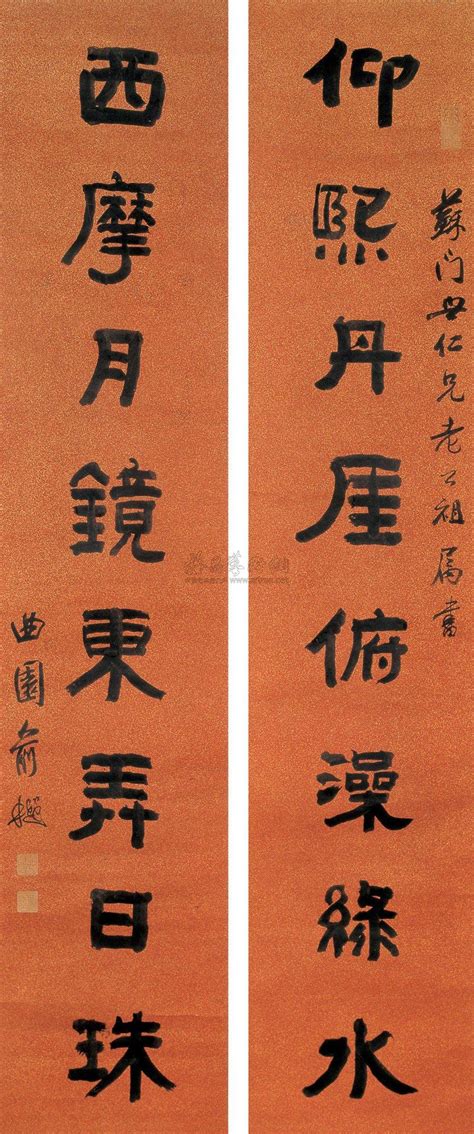 蘇門世仁兄老公祖屬書
仰熙丹厓俯澡綠水
西摩月鏡東弄日珠
曲園俞樾